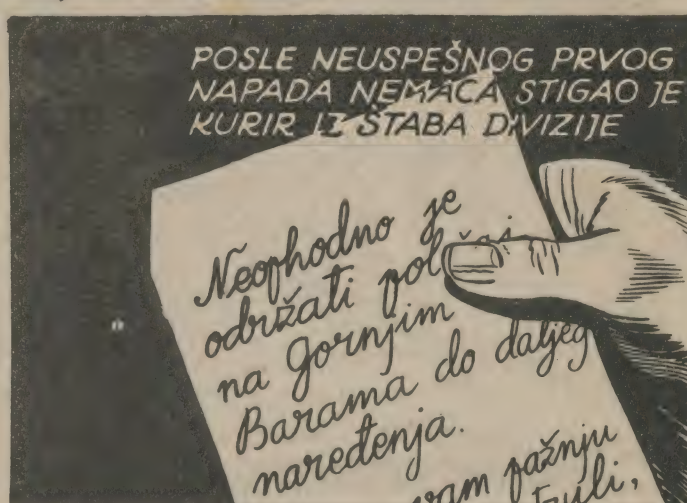 POSLE NEUSPEŠNOG PRVOG
NAPADA NEMACA STIGAO JE
KURIR IZ ŠTABA DIVIZIJE
Neophodno je
održati
na Gornjim
Barama do daljeg
naređenja.
vam pažnju